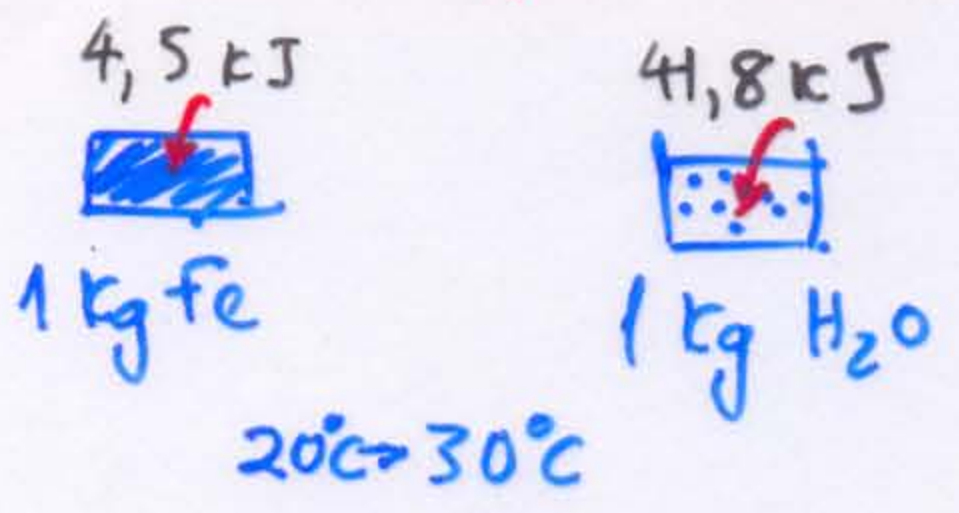 4,5 kJ
41,8 kJ
1 kg Fe
1 kg H₂O
20°C→30°C